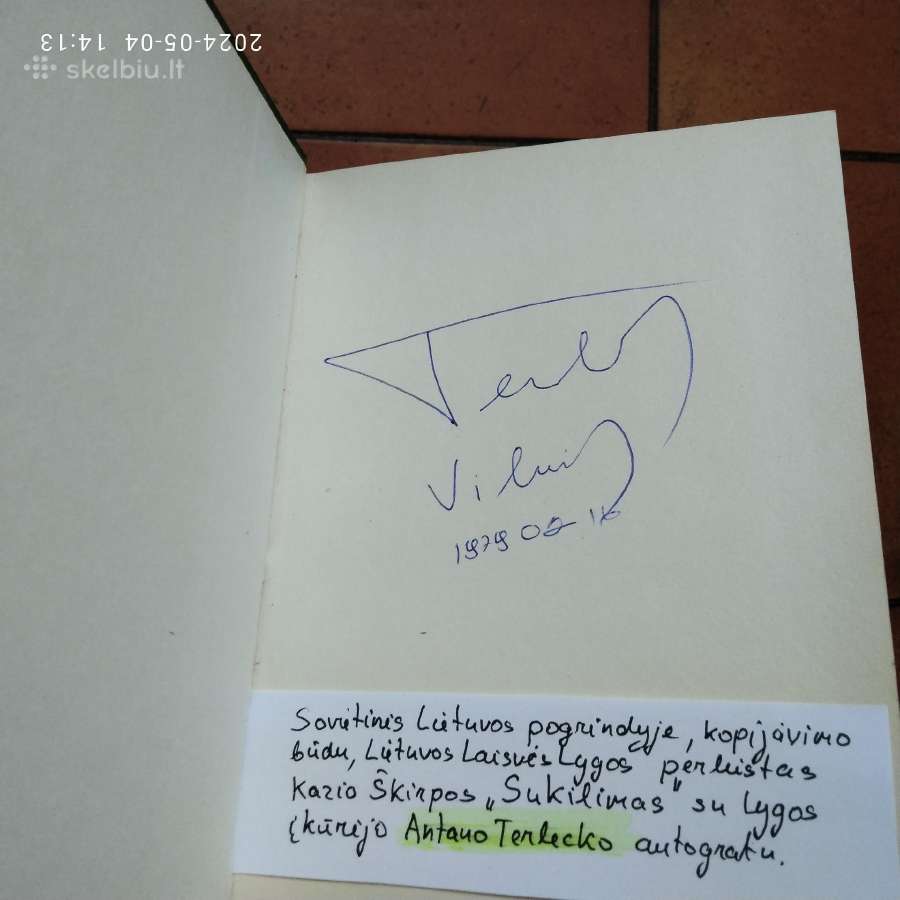 2024-05-04 14:13
skelbiu.lt
Terl
Vilnius
1979 02 16
Sovietinės Lietuvos pogrindyje, kopijavimo
būdu, Lietuvos Laisvės Lygos perleistas
Kazio Škirpos „Sukilimas" su Lygos
įkūrėjo Antano Terlecko autografu.